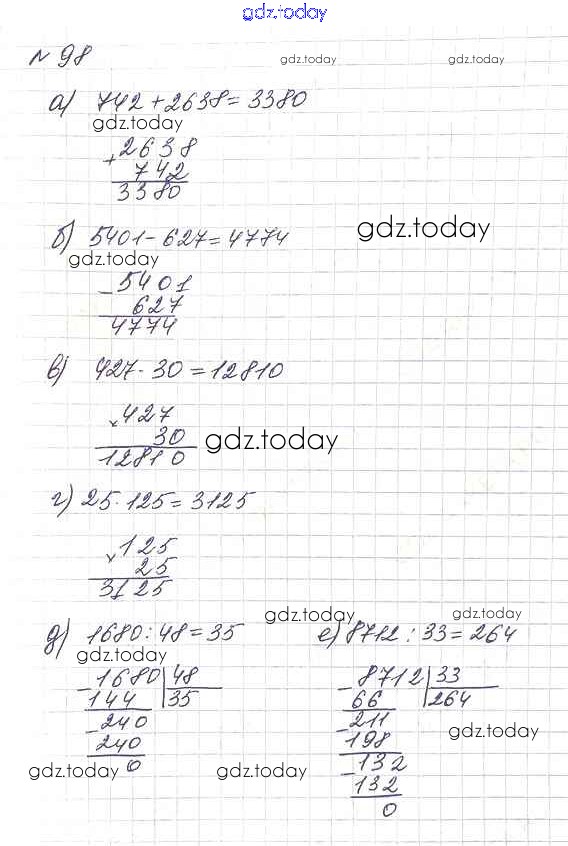 gdz.today
№ 98
gdz.today gdz.today
а) 742 + 2638 = 3380
gdz.today
+ 2638
742
3380
б) 5401 - 627 = 4774
gdz.today
gdz.today
- 5401
627
4774
в) 427 · 30 = 12810
× 427
30
12810
gdz.today
г) 25 · 125 = 3125
× 125
25
3125
gdz.today gdz.today
д) 1680 : 48 = 35
gdz.today
- 1680 48
144 35
- 240
240
0
е) 8712 : 33 = 264
- 8712 33
66 264
- 211
198
- 132
132
0
gdz.today
gdz.today gdz.today